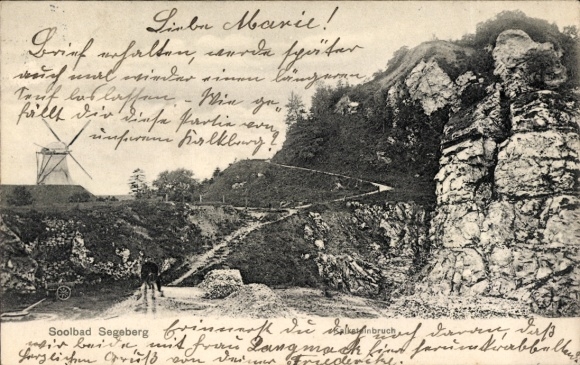 Liebe Marie!
Brief erhalten, werde später
auch mal wieder einen längeren
loslassen – Wie ge-
fällt Dir diese Partie von
unserem Kalkberg?
Soolbad Segeberg
Kalksteinbruch
Erinnerst du dich noch daran, daß
wir beide mit Frau Langmack hier herumkrabbelten
Herzlichen Gruß von deiner Friedericke.